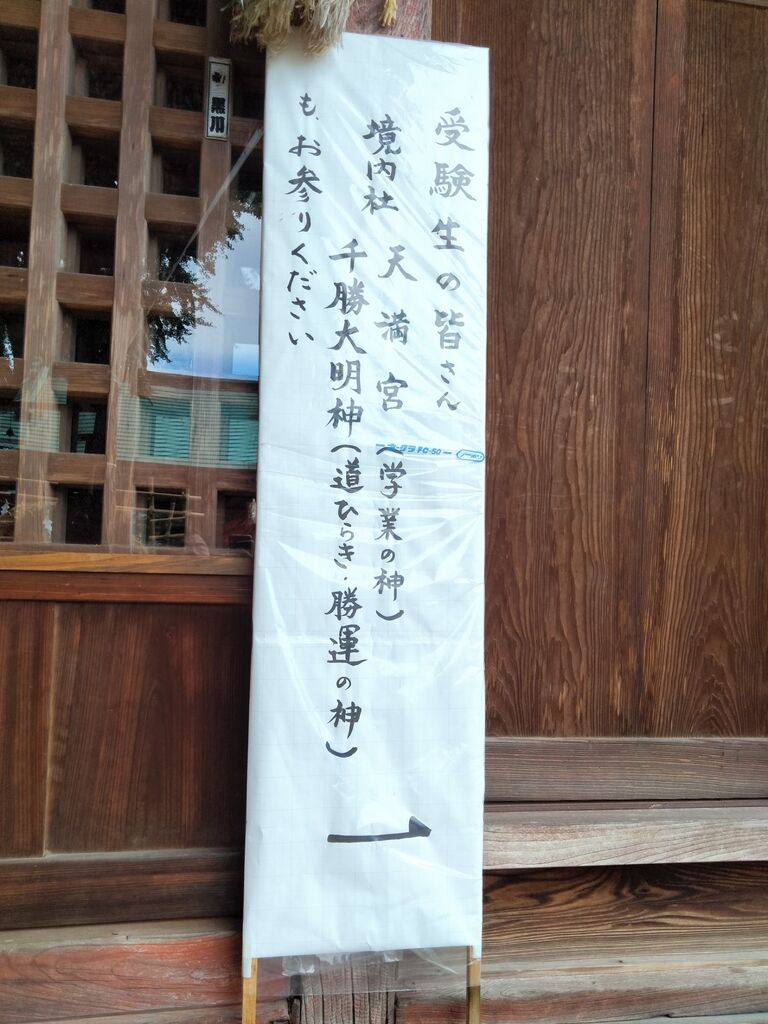 受験生の皆さん
境内社 天満宮(学業の神)
千勝大明神(道ひらき・勝運の神)
も、お参りください
黒川